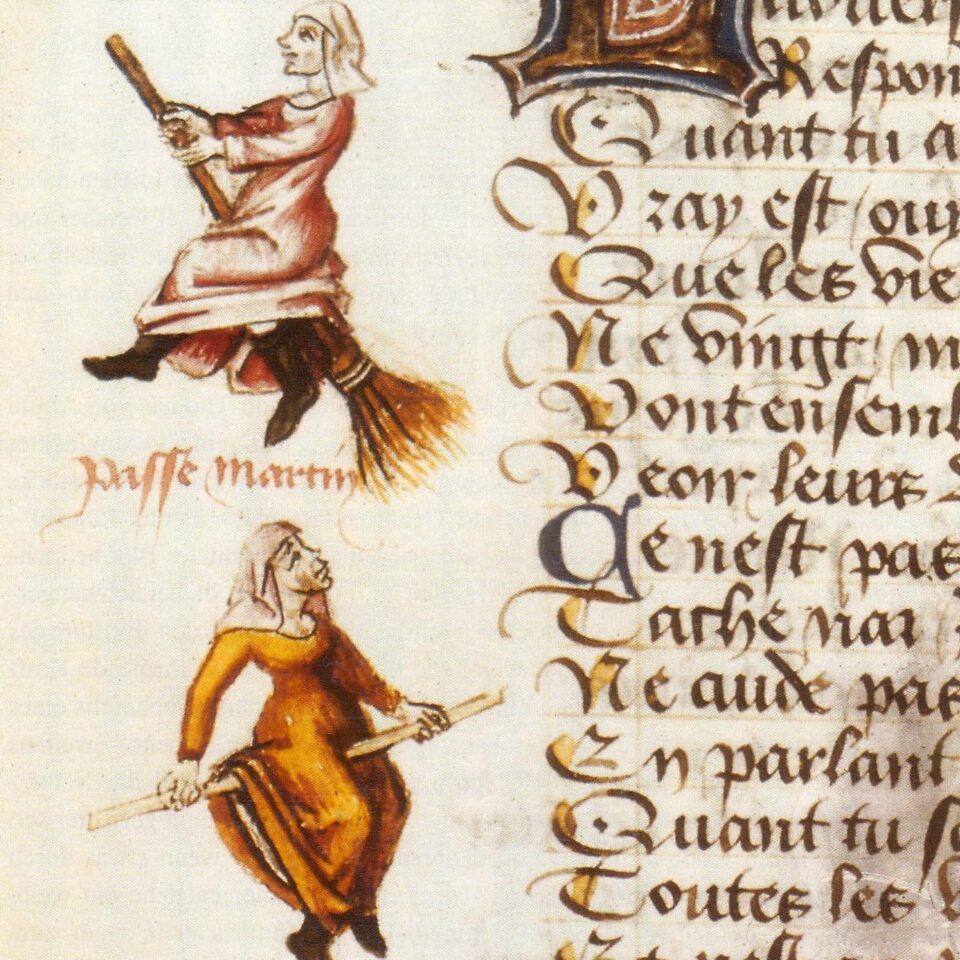 Respon
Quant tu a
Vray est ouy
Que les vie
Ne vingt m
Vont ensemb
Veoir leurs
Ce nest pas
Tache nai
Ne aude pas
En parlant
Quant tu so
Toutes les
Passe martin